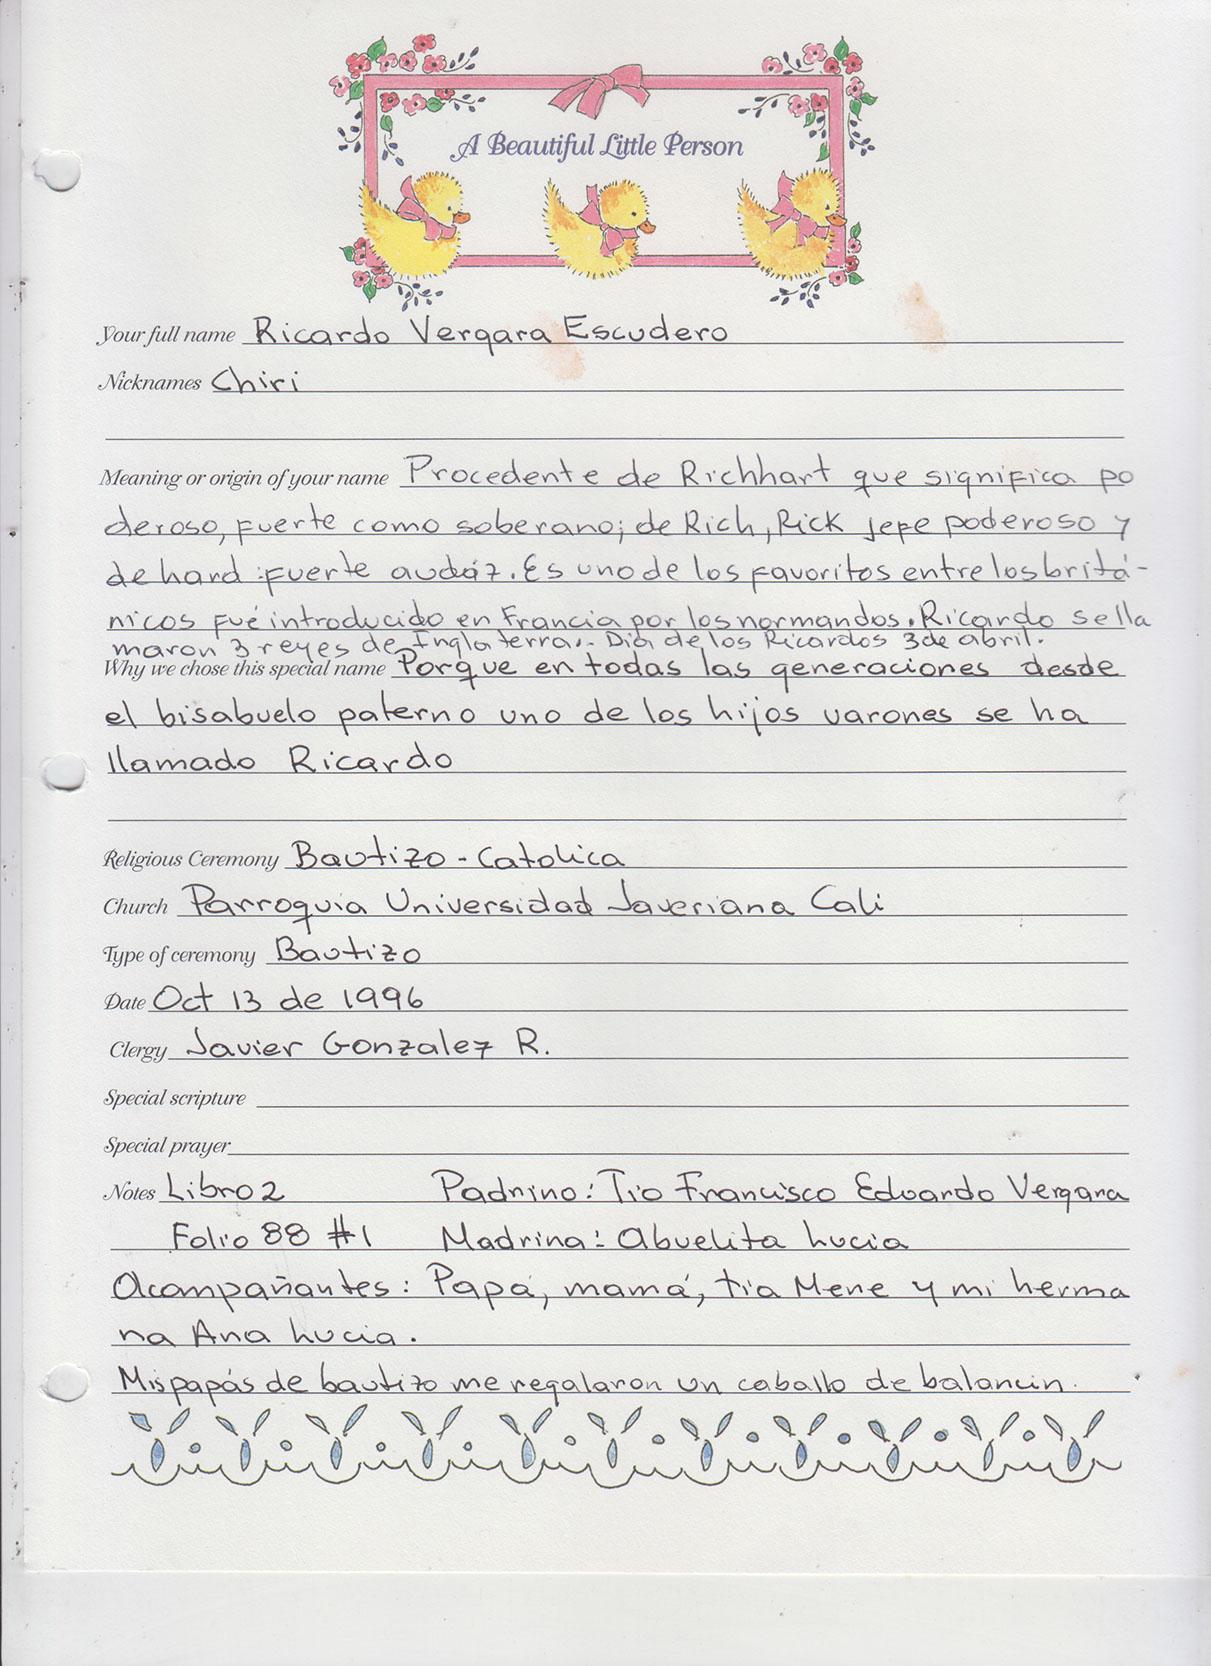 A Beautiful Little Person
Your full name Ricardo Vergara Escudero
Nicknames Chiri
Meaning or origin of your name Procedente de Richhart que significa po
deroso, fuerte como soberano; de Rich, Rick jefe poderoso y
de hard : fuerte audáz. Es uno de los favoritos entre los britá-
nicos fué introducido en Francia por los normandos. Ricardo se lla
maron 3 reyes de Inglaterra.. Día de los Ricardos 3 de abril.
Why we chose this special name Porque en todas las generaciones desde
el bisabuelo paterno uno de los hijos varones se ha
llamado Ricardo
Religious Ceremony Bautizo - Catolica
Church Parroquia Universidad Javeriana Cali
Type of ceremony Bautizo
Date Oct 13 de 1996
Clergy Javier Gonzalez R.
Special scripture
Special prayer
Notes Libro 2 Padrino: Tio Francisco Eduardo Vergara
Folio 88 #1 Madrina: Abuelita Lucia
Acompañantes: Papá, mamá, tia Mene y mi herma
na Ana Lucia.
Mis papás de bautizo me regalaron un caballo de balancin.